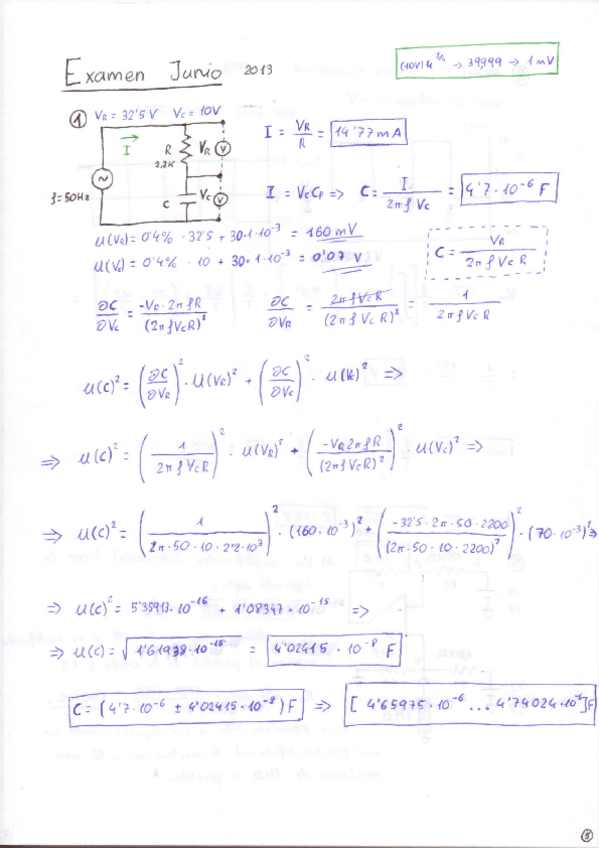 Examen Junio 2013
(10V) 4 3/4 → 39999 → 1mV
① VR = 32'5 V VC = 10V
I
R
2,2K
VR
V
C
VC
V
~
f=50Hz
I = VR / R = 14'77 mA
I = VC Cp => C = I / 2π f VC = 4'7·10⁻⁶ F
u(VR) = 0'4% · 32'5 + 30·1·10⁻³ = 160 mV
u(VC) = 0'4% · 10 + 30·1·10⁻³ = 0'07 V
C = VR / 2π f VC R
∂C/∂VC = -VR · 2π f R / (2π f VC R)²
∂C/∂VR = 2π f VC R / (2π f VC R)² = 1 / 2π f VC R
u(C)² = (∂C/∂VR)² · u(VR)² + (∂C/∂VC)² · u(VC)² =>
=> u(C)² = (1 / 2π f VC R)² · u(VR)² + (-VR 2π f R / (2π f VC R)²)² · u(VC)² =>
=> u(C)² = (1 / 2π·50·10·2'2·10³)² · (160·10⁻³)² + (-32'5·2π·50·2200 / (2π·50·10·2200)²)² · (70·10⁻³)² =>
=> u(C)² = 5'35913·10⁻¹⁶ + 1'08347·10⁻¹⁵ =>
=> u(C) = √1'61938·10⁻¹⁵ = 4'02415 · 10⁻⁸ F
C = (4'7·10⁻⁶ ± 4'02415·10⁻⁸) F => [4'65975·10⁻⁶ ... 4'74024·10⁻⁶] F
⑤